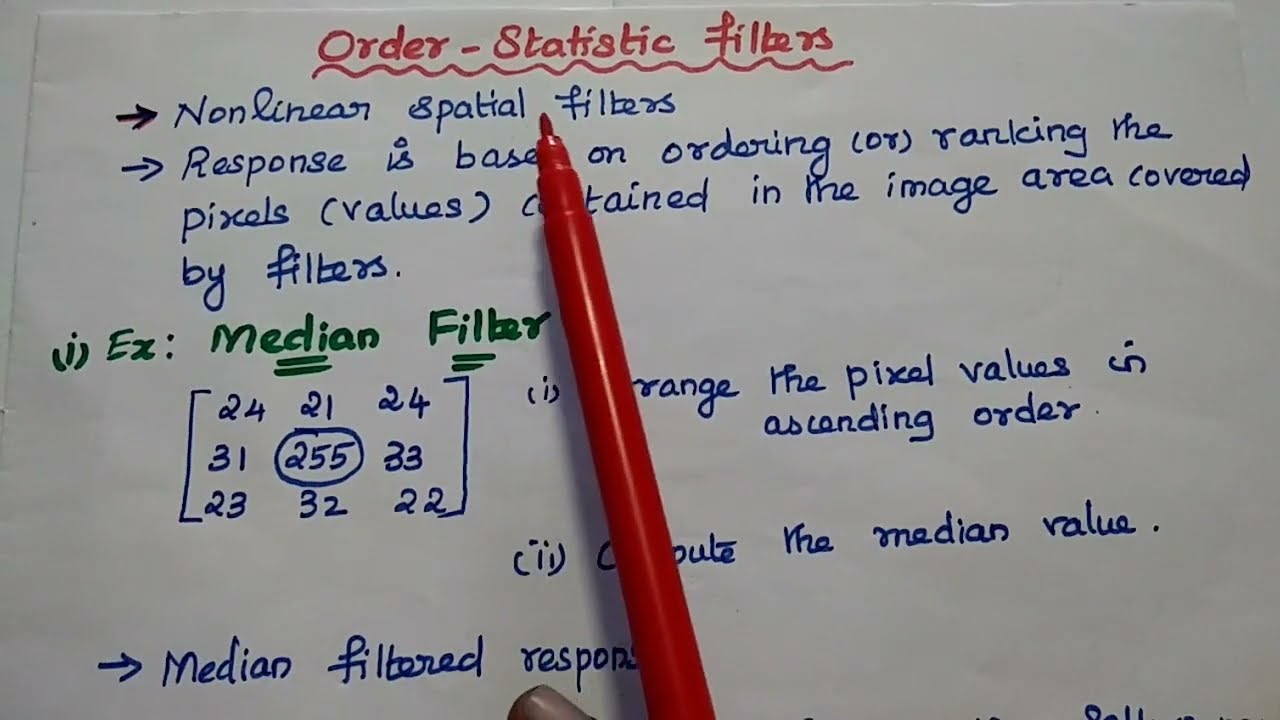 Order - Statistic filters
→ Nonlinear spatial filters
→ Response is based on ordering (or) ranking the
pixels (values) contained in the image area covered
by filters.
(i) Ex: Median Filter
24 21 24
31 255 33
23 32 22
(i) Arrange the pixel values in
ascending order.
(ii) Compute the median value.
→ Median filtered